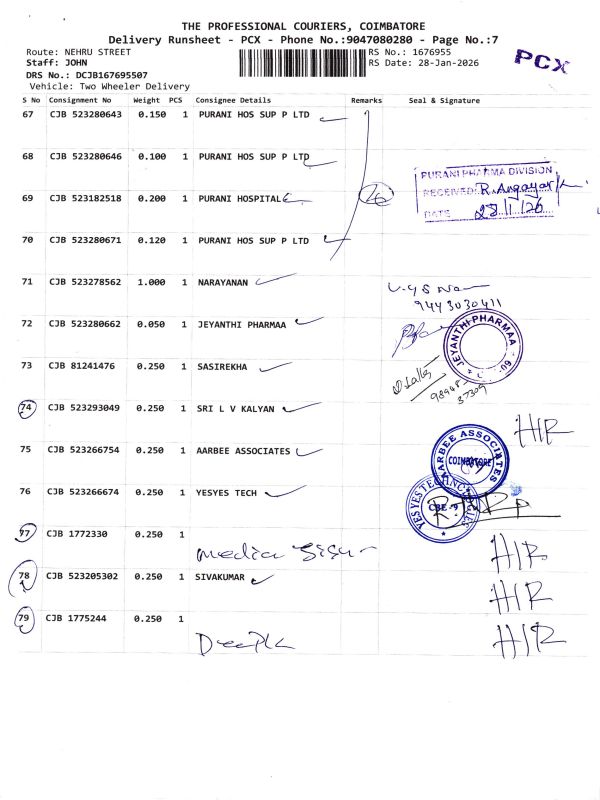 THE PROFESSIONAL COURIERS, COIMBATORE
Delivery Runsheet - PCX - Phone No.:9047080280 - Page No.:7
Route: NEHRU STREET
RS No.: 1676955
PCX
Staff: JOHN
RS Date: 28-Jan-2026
DRS No.: DCJB167695507
Vehicle: Two Wheeler Delivery
S No Consignment No Weight PCS Consignee Details Remarks Seal & Signature
67 CJB 523280643 0.150 1 PURANI HOS SUP P LTD
68 CJB 523280646 0.100 1 PURANI HOS SUP P LTD
PURANI PHARMA DIVISION
69 CJB 523182518 0.200 1 PURANI HOSPITAL
RECEIVED
DATE 28/1/26
70 CJB 523280671 0.120 1 PURANI HOS SUP P LTD
71 CJB 523278562 1.000 1 NARAYANAN
9443030411
72 CJB 523280662 0.050 1 JEYANTHI PHARMAA
JEYANTHI PHARMAA
73 CJB 81241476 0.250 1 SASIREKHA
98948
37309
74 CJB 523293049 0.250 1 SRI L V KALYAN
H/R
75 CJB 523266754 0.250 1 AARBEE ASSOCIATES
AARBEE ASSOCIATES
COIMBATORE
76 CJB 523266674 0.250 1 YESYES TECH
CBE-9
77 CJB 1772330 0.250 1
media
H/R
78 CJB 523205302 0.250 1 SIVAKUMAR
H/R
79 CJB 1775244 0.250 1
Deepa
H/R